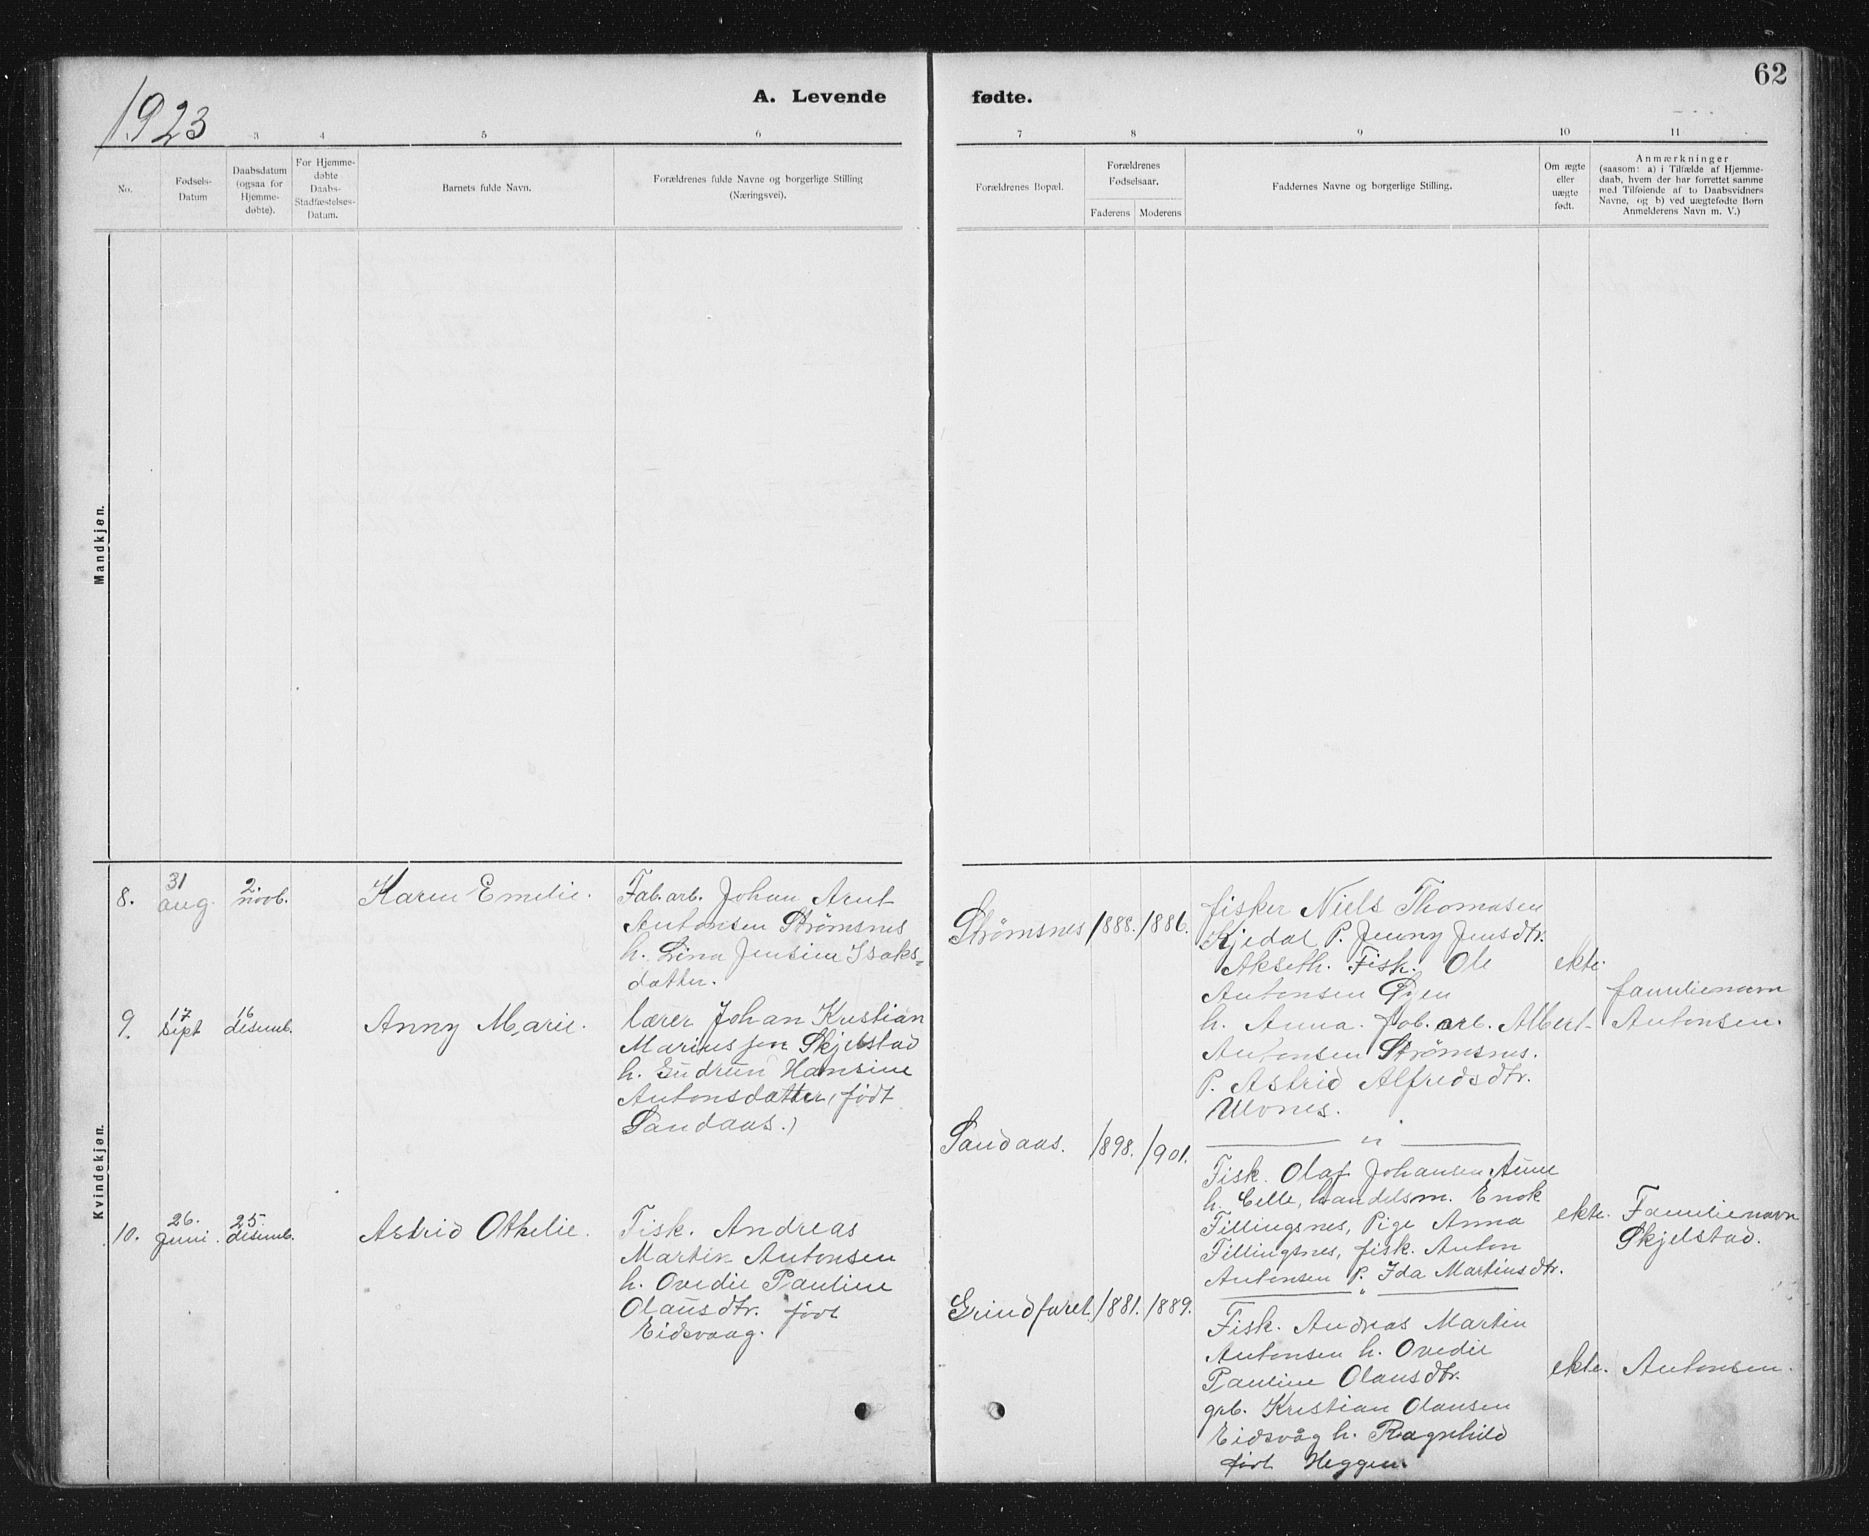 1923
A. Levende fødte.
62
1 3 4 5 6 7 8 9 10 11
No.
Fødsels-
Datum
Daabsdatum
(ogsaa for
Hjemme-
døbte).
For Hjemme-
døbte
Daabs-
Stadfæstelses-
Datum.
Barnets fulde Navn.
Forældrenes fulde Navne og borgerlige Stilling
(Næringsvei).
Forældrenes Bopæl.
Forældrenes
Fødselsaar.
Faderens
Moderens
Faddernes Navne og borgerlige Stilling.
Om ægte
eller
uægte
født.
Anmærkninger
(saasom: a) i Tilfælde af Hjemme-
daab, hvem der har forrettet samme
med Tilføiende af to Daabsvidners
Navne, og b) ved uægtefødte Born
Anmelderens Navn m. V.)
Mandkjøn.
Kvindekjøn.
8.
31
aug.
2.
novb.
Karen Emelie.
Fab.arb. Johan Arnt
Antonsen Strømsnes
h. Lina Jensine Isaks-
datter.
Strømsnes
1888.
1886.
fisker Niels Thomasen
Kjedal P. Jenny Jensdtr.
Akseth. Fisk. Ole
Antonsen Øyen
h. Anna. fab. arb. Albert
Antonsen Strømsnes.
P. Astrid Alfredsdtr.
Ulvnes.
ekte.
familienavn
Antonsen.
9.
17
sept
16
desemb.
Anny Marie.
lærer Johan Kristian
Mariussen Skjelstad
h. Gudrun Hansine
Antonsdatter, født
Sandaas.)
Sandaas.
1898.
1901.
Fisk. Olaf Johansen Aune
h. Celle, handelsm. Enok
Fillingsnes, Pige Anna
Fillingsnes, fisk. Anton
Antonsen P. Ida Martinsdtr.
ekte.
Familienavn
Skjelstad.
10.
26.
Juni.
25.
desemb.
Astrid Othelie.
Fisk. Andreas
Martin Antonsen
h. Ovedie Pauline
Olausdtr. født
Eidsvaag.
Grindfaret.
1881.
1889.
Fisk. Andreas Martin
Antonsen h. Ovedie
Pauline Olausdtr.
grb. Kristian Olausen
Eidsvåg h. Ragnhild
født Heggen.
ekte.
Antonsen.